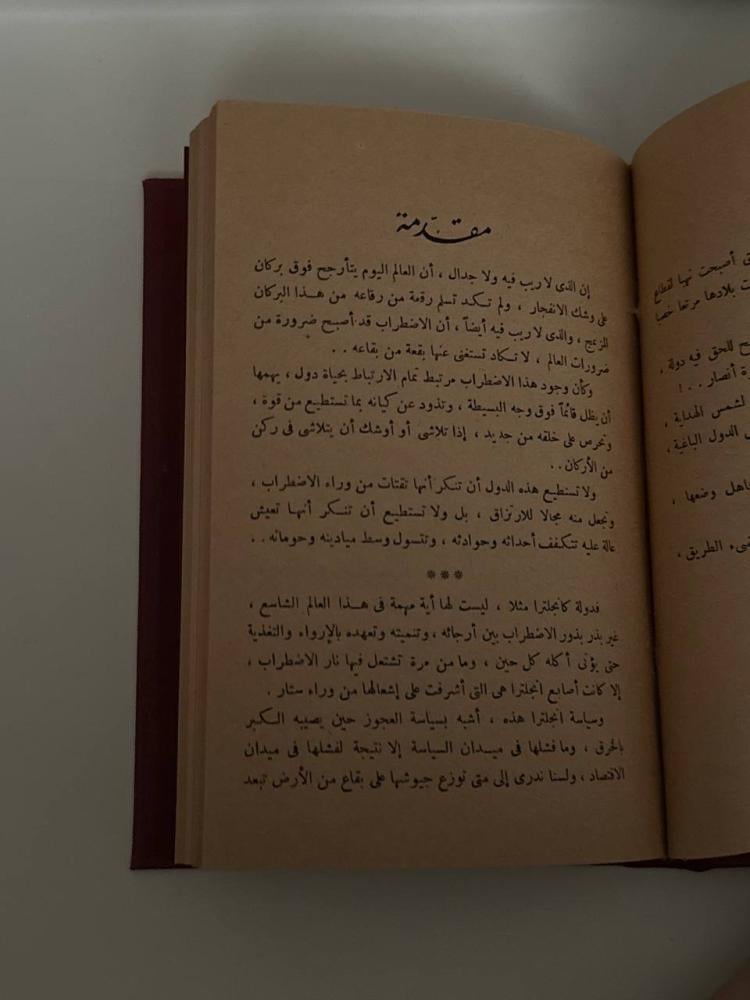 مقدّمة
إن الذى لا ريب فيه ولا جدال ، أن العالم اليوم يتأرجح فوق بركان
على وشك الانفجار ، ولم تكد تسلم رقعة من رقاعه من هذا البركان
المزعج ، والذى لا ريب فيه أيضاً ، أن الاضطراب قد أصبح ضرورة من
ضرورات العالم ، لا تكاد تستغنى عنها بقعة من بقاعه . .
وكأن وجود هذا الاضطراب مرتبط تمام الارتباط بحياة دول ، يهمها
أن يظل قائماً فوق وجه البسيطة ، وتذود عن كيانه بما تستطيع من قوة ،
وتحرص على خلقه من جديد ، إذا تلاشى أو أوشك أن يتلاشى فى ركن
من الأركان . .
ولا تستطيع هذه الدول أن تنكر أنها تقتات من وراء الاضطراب ،
وتجعل منه مجالا للارتزاق ، بل ولا تستطيع أن تنكر أنها تعيش
عالة عليه تتكفف أحداثه وحوادثه ، وتتسول وسط ميادينه وحوماته . .
***
فدولة كانجلترا مثلا ، ليست لها أية مهمة فى هذا العالم الشاسع ،
غير بذر بذور الاضطراب بين أرجائه ، وتنميته وتعهده بالإرواء والتغذية
حتى يؤتى أكله كل حين ، وما من مرة تشتعل فيها نار الاضطراب ،
إلا كانت أصابع انجلترا هى التى أشرفت على إشعالها من وراء ستار .
وسياسة انجلترا هذه ، أشبه بسياسة العجوز حين يصيبه الكبر
بالخرق ، وما فشلها فى ميدان السياسة إلا نتيجة لفشلها فى ميدان
الاقتصاد ، ولسنا ندرى إلى متى توزع جيوشها على بقاع من الأرض تبعد
أصبحت نهبا لقطاع
بلادها مرتعا خصبا
للحق فيه دولة ،
أنصار . . !
لشمس الهداية ،
الدول الباغية ،
وضعها ،
الطريق ،